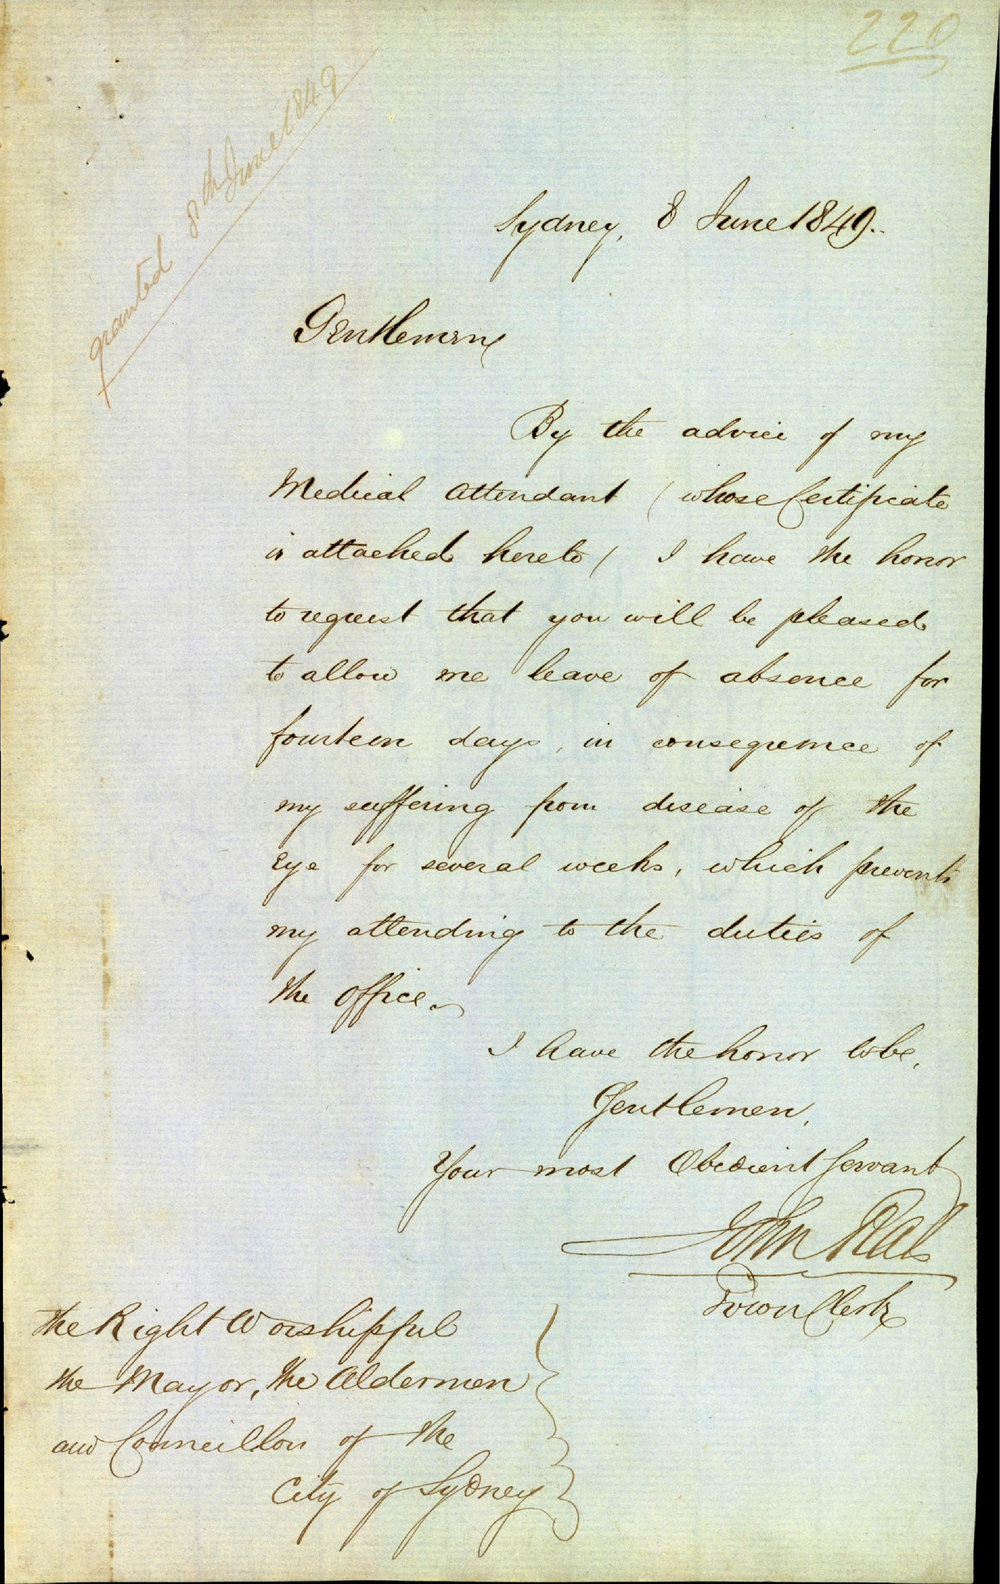 220
granted 8th June 1849
Sydney, 8 June 1849.
Gentlemen,
By the advice of my
Medical Attendant (whose Certificate
is attached hereto) I have the honor
to request that you will be pleased
to allow me leave of absence for
fourteen days, in consequence of
my suffering from disease of the
Eye for several weeks, which prevents
my attending to the duties of
the office.
I have the honor to be,
Gentlemen,
Your most Obedient Servant
John Rae
Town Clerk
The Right Worshipful
the Mayor, the Aldermen
and Councillors of the
City of Sydney